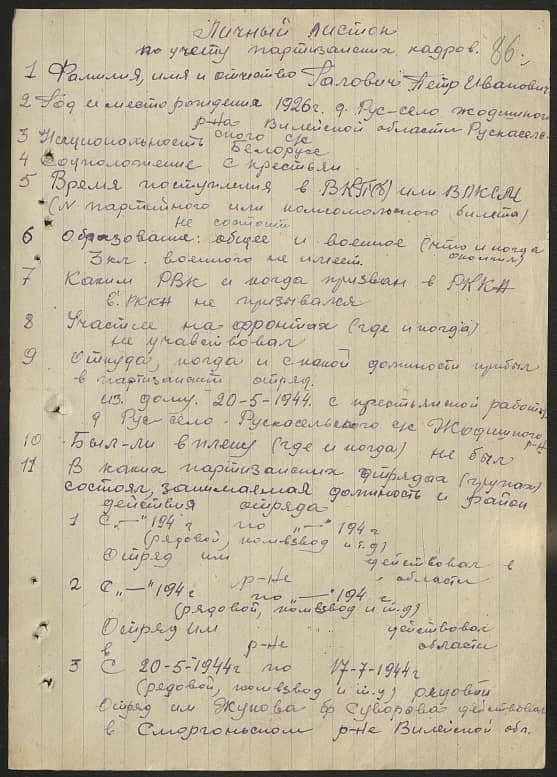 Личный листок
по учету партизанских кадров. 86.
1 Фамилия, имя и отчество Галович Петр Иванович
2 Год и место рождения 1926г. д. Рус-село Жодишког
р-на Вилейской области Рускасель-
3 Национальность ского с/с
Белорусс
4 Соцположение с крестьян
5 Время поступления в ВКП(б) или ВЛКСМ
(N партийного или комсомольского билета)
не состоит
6 Образование: общее и военное (что и когда
окончил)
3 кл. военного не имеет.
7 Каким РВК и когда призван в РККА
в РККА не призывался
8 Участие на фронтах (где и когда)
не учавствовал
9 Откуда, когда и с какой должности прибыл
в партизанский отряд.
из дому. 20-5-1944. с крестьянской работы
д Рус село. Рускасельского с/с Жодишког
р-н
10 Был-ли в плену (где и когда) не был
11 В каких партизанских отрядах (групах)
состоял, занимаемая должность и район
действия отряда
1 С „—“ 194 г по „—“ 194 г
(рядовой, помвзвод и т.д)
Отряд им действовал в
р-не области
2 С „—“ 194 г по „—“ 194 г
(рядовой, помвзвод и т.д)
Отряд им действовал
в р-не области
3 С 20-5-1944г по 17-7-1944г
(рядовой, помвзвод и т.д) рядовой
Отряд им Жукова бр Суворова действовал
в Сморгоньском р-не Вилейской обл.